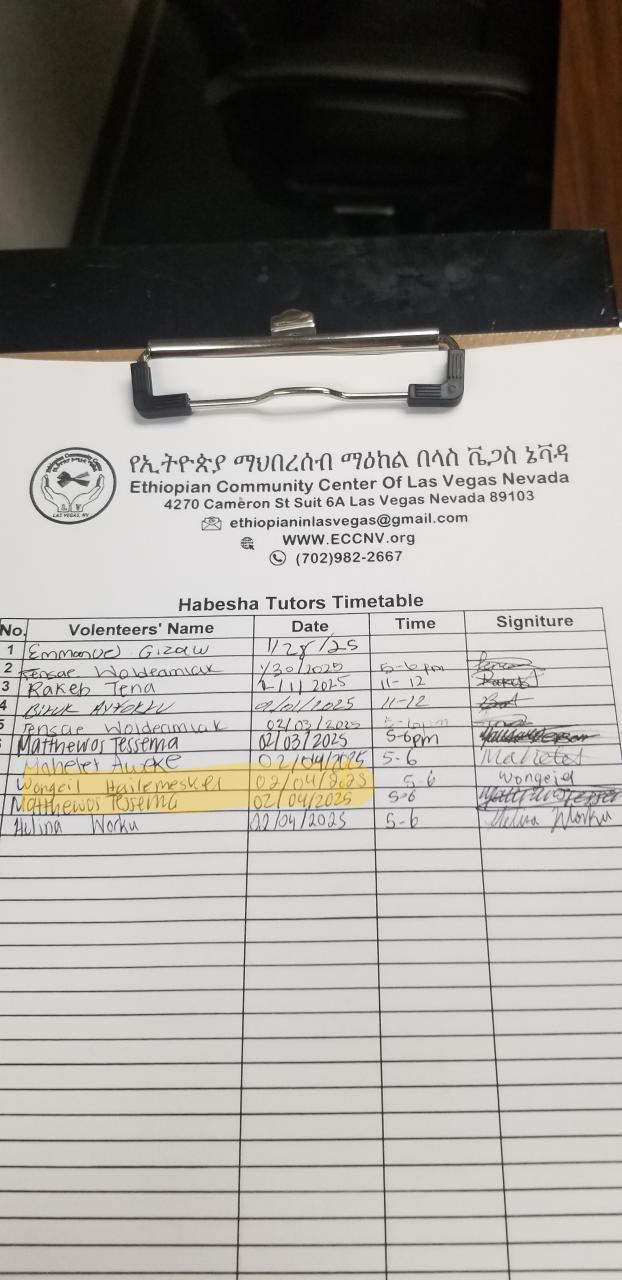 የኢትዮጵያ ማህበረሰብ ማዕከል በላስ ቬጋስ ኔቫዳ
Ethiopian Community Center Of Las Vegas Nevada
4270 Cameron St Suit 6A Las Vegas Nevada 89103
ethiopianinlasvegas@gmail.com
WWW.ECCNV.org
(702)982-2667
Ethiopian Community Center
LAS VEGAS, NV
Habesha Tutors Timetable
No. Volenteers' Name Date Time Signiture
1 Emmanuel Gizaw 1/28/25
2 Tensae Woldeamlak 1/30/2025 5-6pm
3 Rakeb Tena 2/1/2025 11-12 Rakeb
4 /01/2025 11-12
5 Tensae Woldeamlak 02/03/2025 5-6pm
Matthewos Tessema 02/03/2025 5-6pm
Mahelet 02/04/2025 5-6 Mahelet
Wongeil Hailemeskel 02/04/2025 5-6 Wongeid
Matthewos Tessema 02/04/2025 5-6
Helina Worku 22/04/2025 5-6 Helina Worku